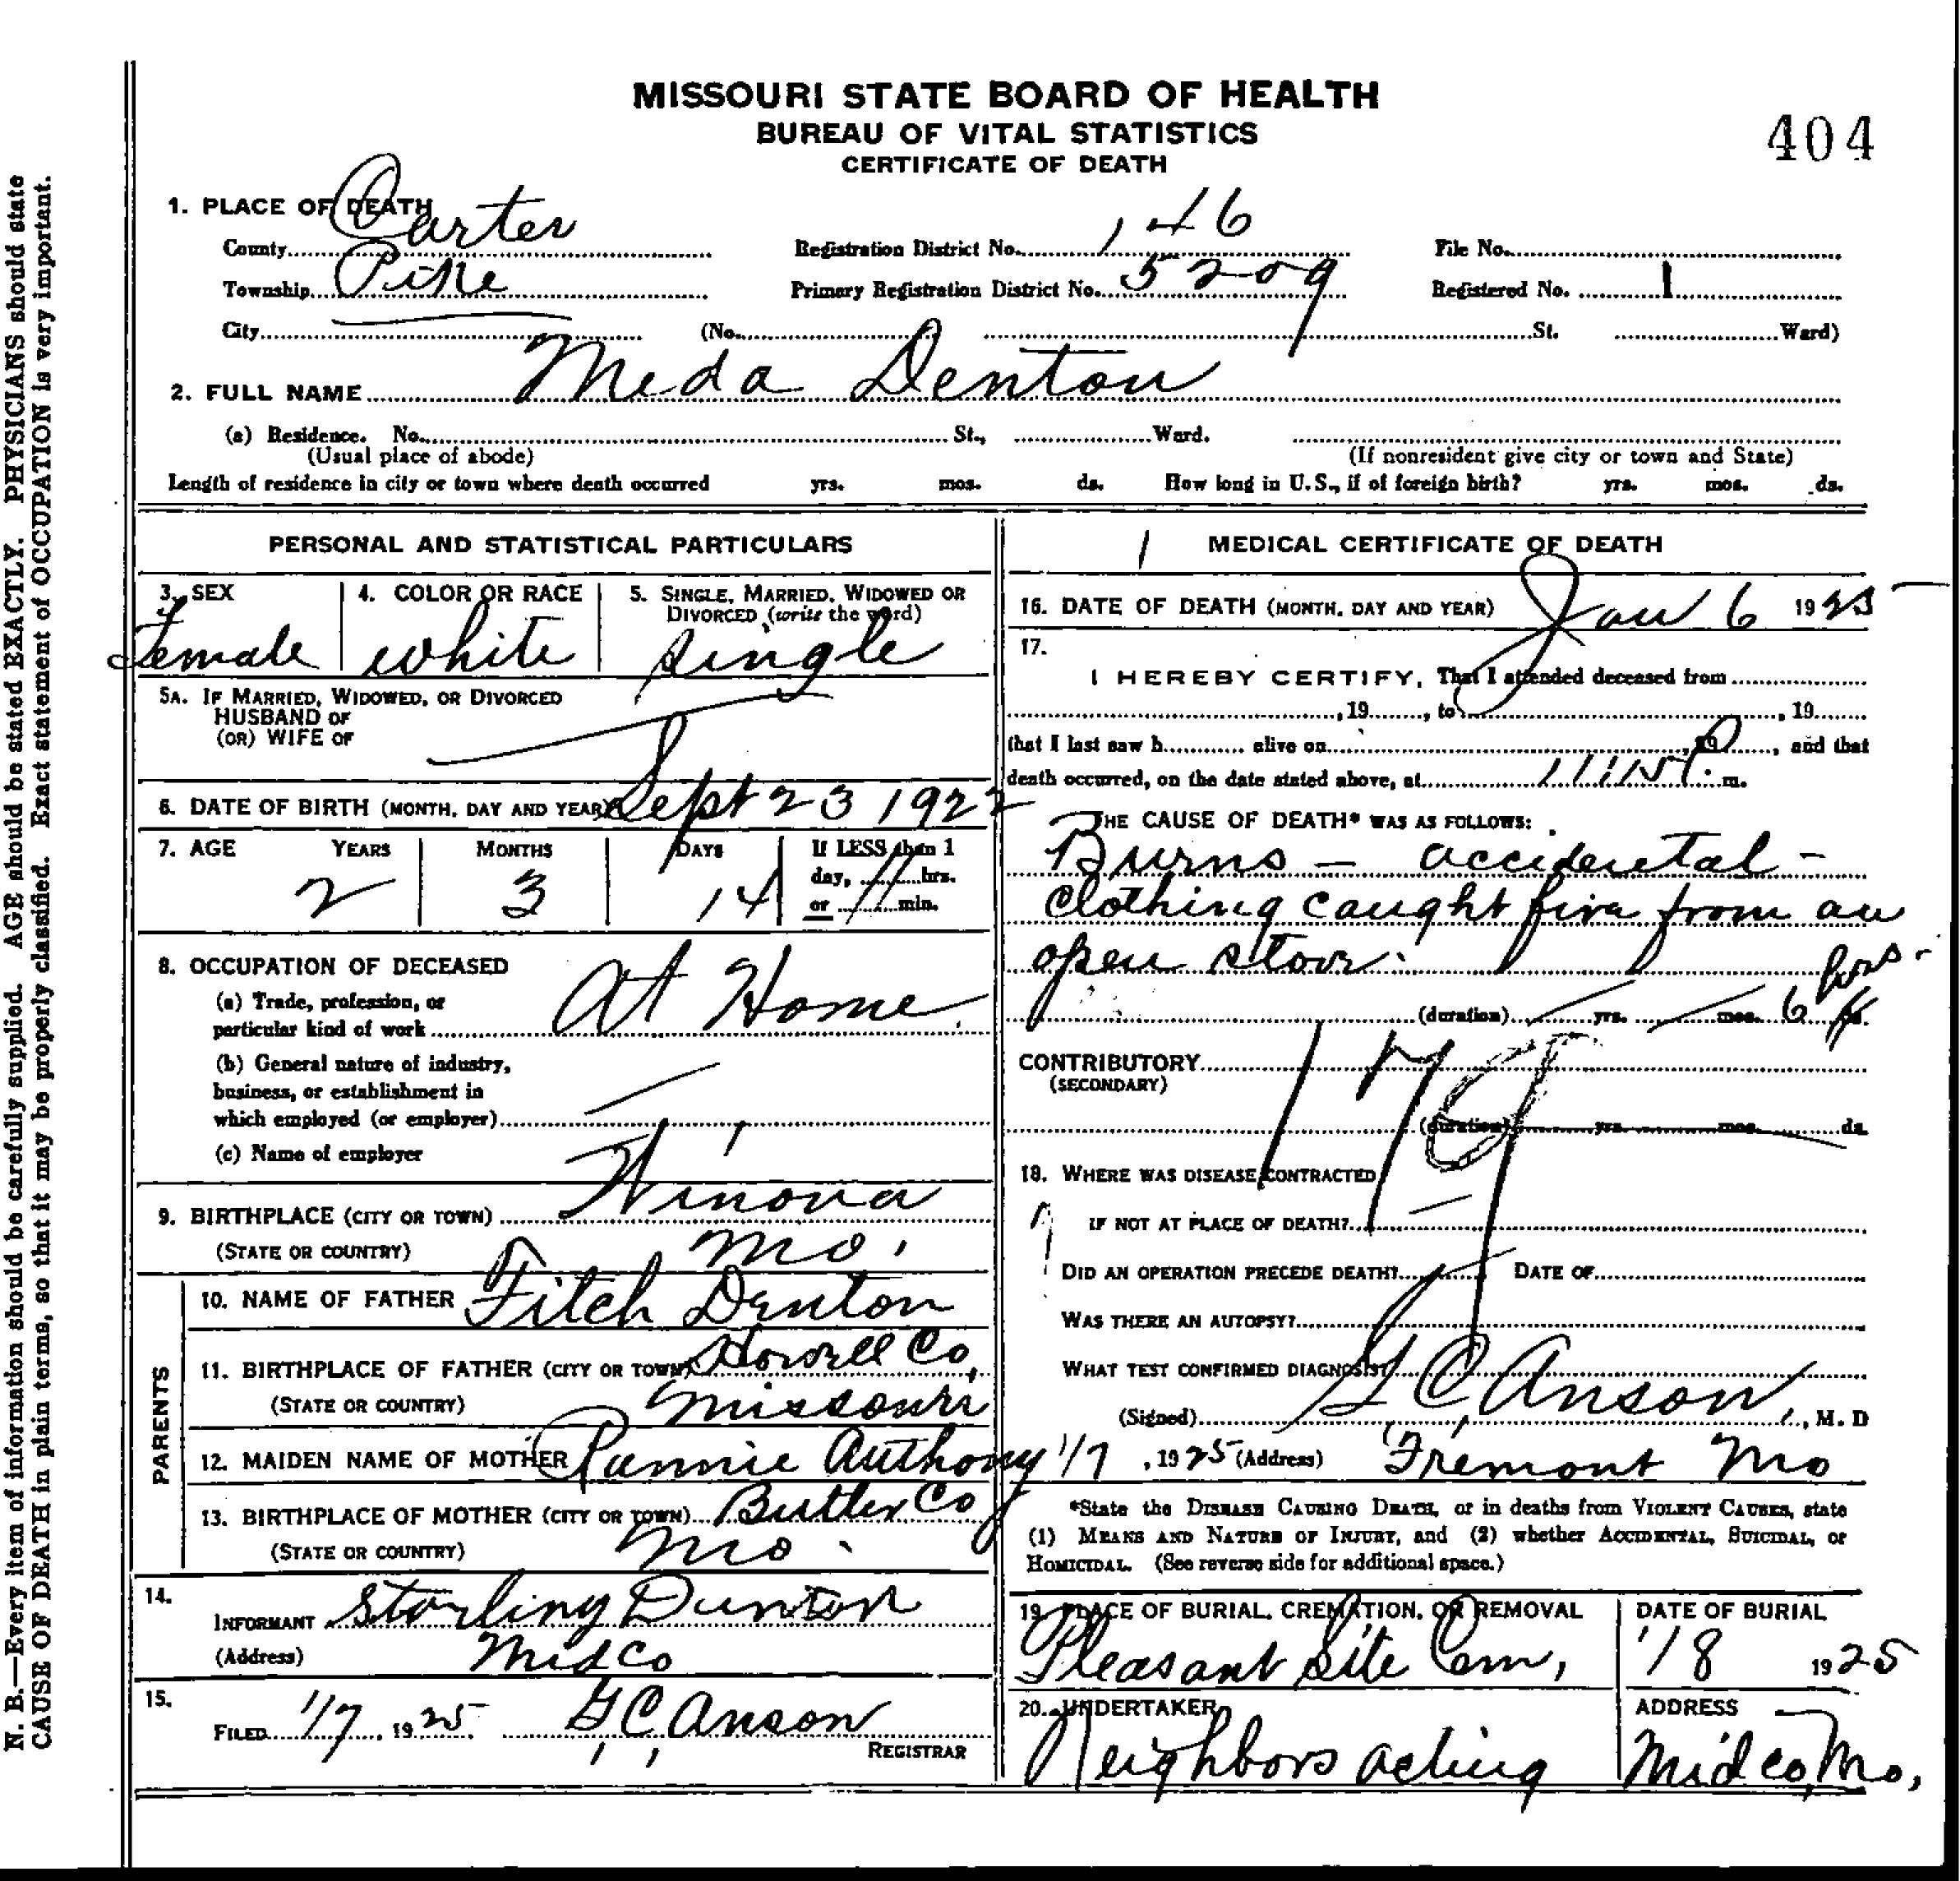 MISSOURI STATE BOARD OF HEALTH
BUREAU OF VITAL STATISTICS
CERTIFICATE OF DEATH
404
1. PLACE OF DEATH
County Carter Registration District No. 146 File No.
Township Pike Primary Registration District No. 5209 Registered No. 1
City (No. St. Ward)
2. FULL NAME Meda Denton
(a) Residence. No. St., Ward.
(Usual place of abode) (If nonresident give city or town and State)
Length of residence in city or town where death occurred yrs. mos. ds. How long in U.S., if of foreign birth? yrs. mos. ds.
PERSONAL AND STATISTICAL PARTICULARS
3. SEX 4. COLOR OR RACE 5. SINGLE, MARRIED, WIDOWED OR
DIVORCED (write the word)
Female white single
5A. IF MARRIED, WIDOWED, OR DIVORCED
HUSBAND OF
(OR) WIFE OF
6. DATE OF BIRTH (MONTH, DAY AND YEAR) Sept 23 1922
7. AGE YEARS MONTHS DAYS If LESS than 1
day, hrs.
2 3 14 or min.
8. OCCUPATION OF DECEASED
(a) Trade, profession, or
particular kind of work At Home
(b) General nature of industry,
business, or establishment in
which employed (or employer)
(c) Name of employer
9. BIRTHPLACE (CITY OR TOWN) Winona
(STATE OR COUNTRY) Mo.
PARENTS
10. NAME OF FATHER Fitch Denton
11. BIRTHPLACE OF FATHER (CITY OR TOWN) Howell Co,
(STATE OR COUNTRY) Missouri
12. MAIDEN NAME OF MOTHER Pannie Anthony
13. BIRTHPLACE OF MOTHER (CITY OR TOWN) Butler Co
(STATE OR COUNTRY) Mo.
14.
INFORMANT Starling Denton
(Address) Midco
15.
FILED 1/7, 1925 G C Anson
REGISTRAR
MEDICAL CERTIFICATE OF DEATH
16. DATE OF DEATH (MONTH, DAY AND YEAR) Jan 6 1925
17.
I HEREBY CERTIFY, That I attended deceased from
, 19 , to , 19
that I last saw h alive on , 19 , and that
death occurred, on the date stated above, at 11:15 P. m.
THE CAUSE OF DEATH* WAS AS FOLLOWS:
Burns - accidental -
clothing caught fire from an
open stove.
hrs.
(duration) yrs. mos. 6 ds.
CONTRIBUTORY
(SECONDARY)
179
(duration) yrs. mos. ds.
18. WHERE WAS DISEASE CONTRACTED
IF NOT AT PLACE OF DEATH?
DID AN OPERATION PRECEDE DEATH? DATE OF
WAS THERE AN AUTOPSY?
WHAT TEST CONFIRMED DIAGNOSIS?
(Signed) G C Anson, M. D
1/7, 1925 (Address) Fremont Mo
*State the DISEASE CAUSING DEATH, or in deaths from VIOLENT CAUSES, state
(1) MEANS AND NATURE OF INJURY, and (2) whether ACCIDENTAL, SUICIDAL, or
HOMICIDAL. (See reverse side for additional space.)
19. PLACE OF BURIAL, CREMATION, OR REMOVAL DATE OF BURIAL
Pleasant Site Cem, 1/8 1925
20. UNDERTAKER ADDRESS
Neighbors acting Midco, Mo,
N. B.—Every item of information should be carefully supplied. AGE should be stated EXACTLY. PHYSICIANS should state
CAUSE OF DEATH in plain terms, so that it may be properly classified. Exact statement of OCCUPATION is very important.